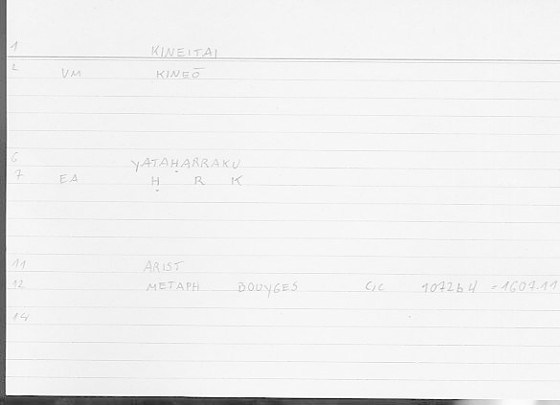 1 KINEITAI
2 VM KINEŌ
6 YATAḤARRAKU
7 EA Ḥ R K
11 ARIST
12 METAPH BOUYGES 1072b4 = 1607.11
14